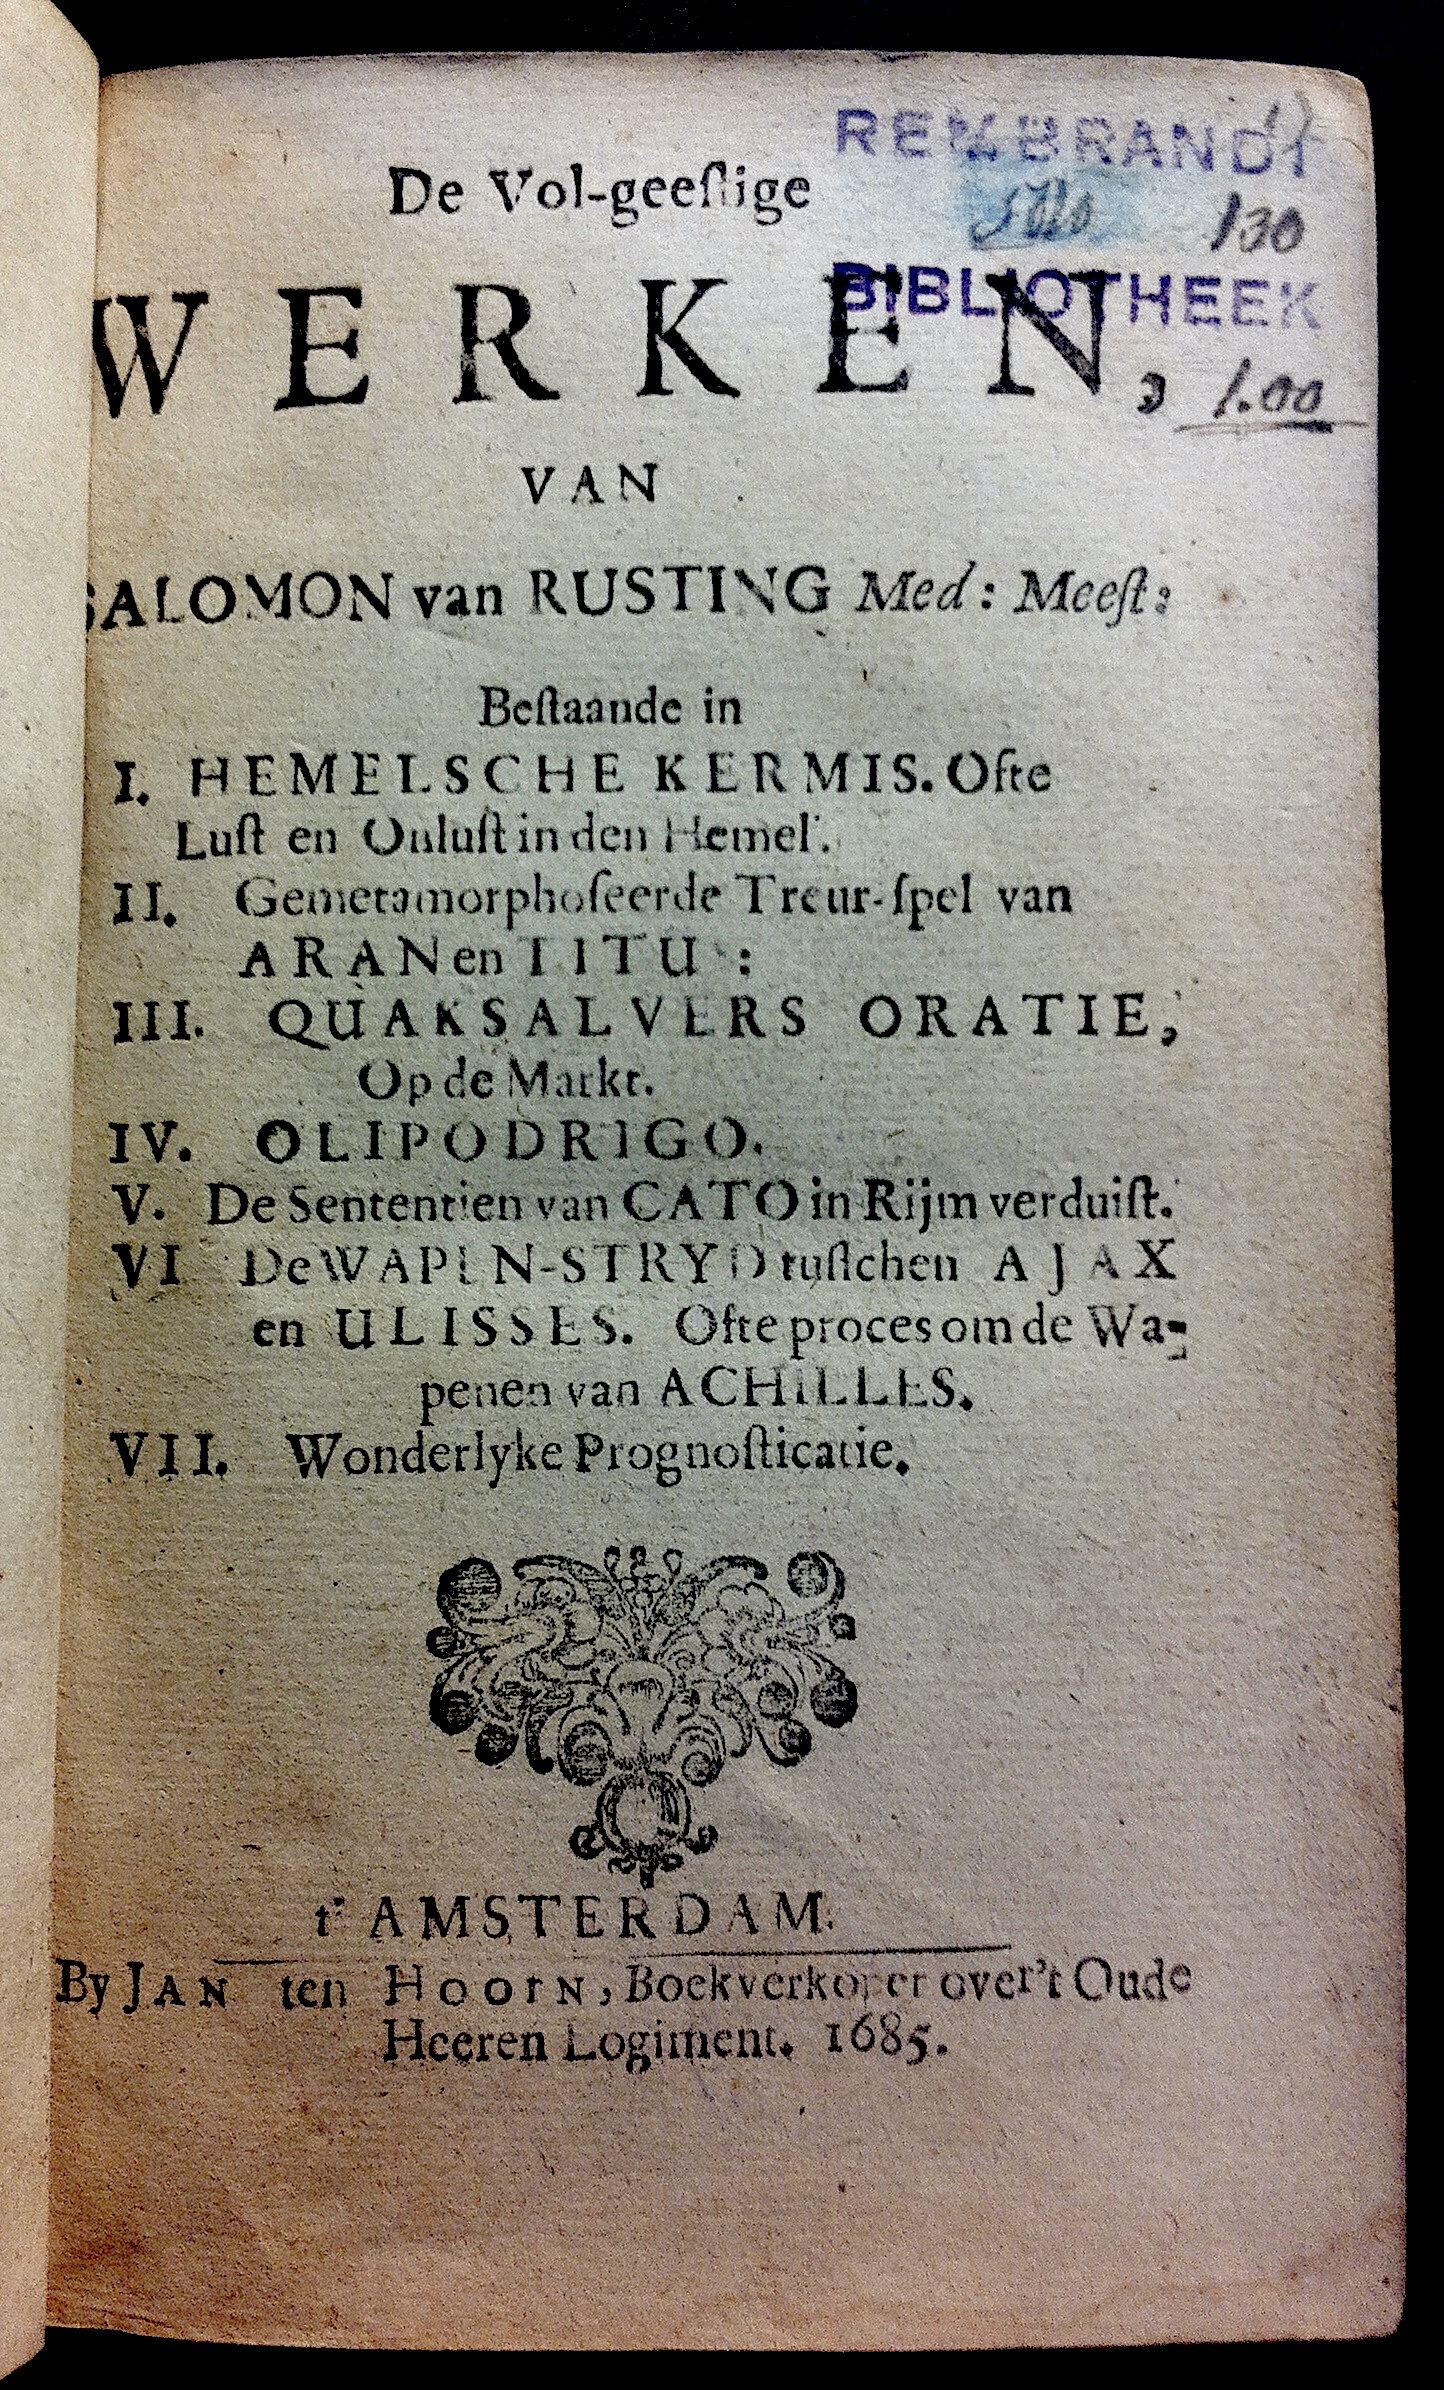 REMBRANDT
De Vol-geeſtige
130
BIBLIOTHEEK
WERKEN,
1.00
VAN
SALOMON van RUSTING Med: Meeſt:
Beſtaande in
I. HEMELSCHE KERMIS. Ofte
Luſt en Onluſt in den Hemel.
II. Gemetamorphoſeerde Treur-ſpel van
ARAN en TITUS:
III. QUAKSALVERS ORATIE,
Op de Markt.
IV. OLIPODRIGO.
V. De Sententien van CATO in Rijm verduiſt.
VI De WAPEN-STRYD tuſſchen AJAX
en ULISSES. Ofte proces om de Wa-
penen van ACHILLES.
VII. Wonderlyke Prognoſticatie.
t' AMSTERDAM.
By JAN ten HOORN, Boekverkoper over't Oude
Heeren Logiment. 1685.